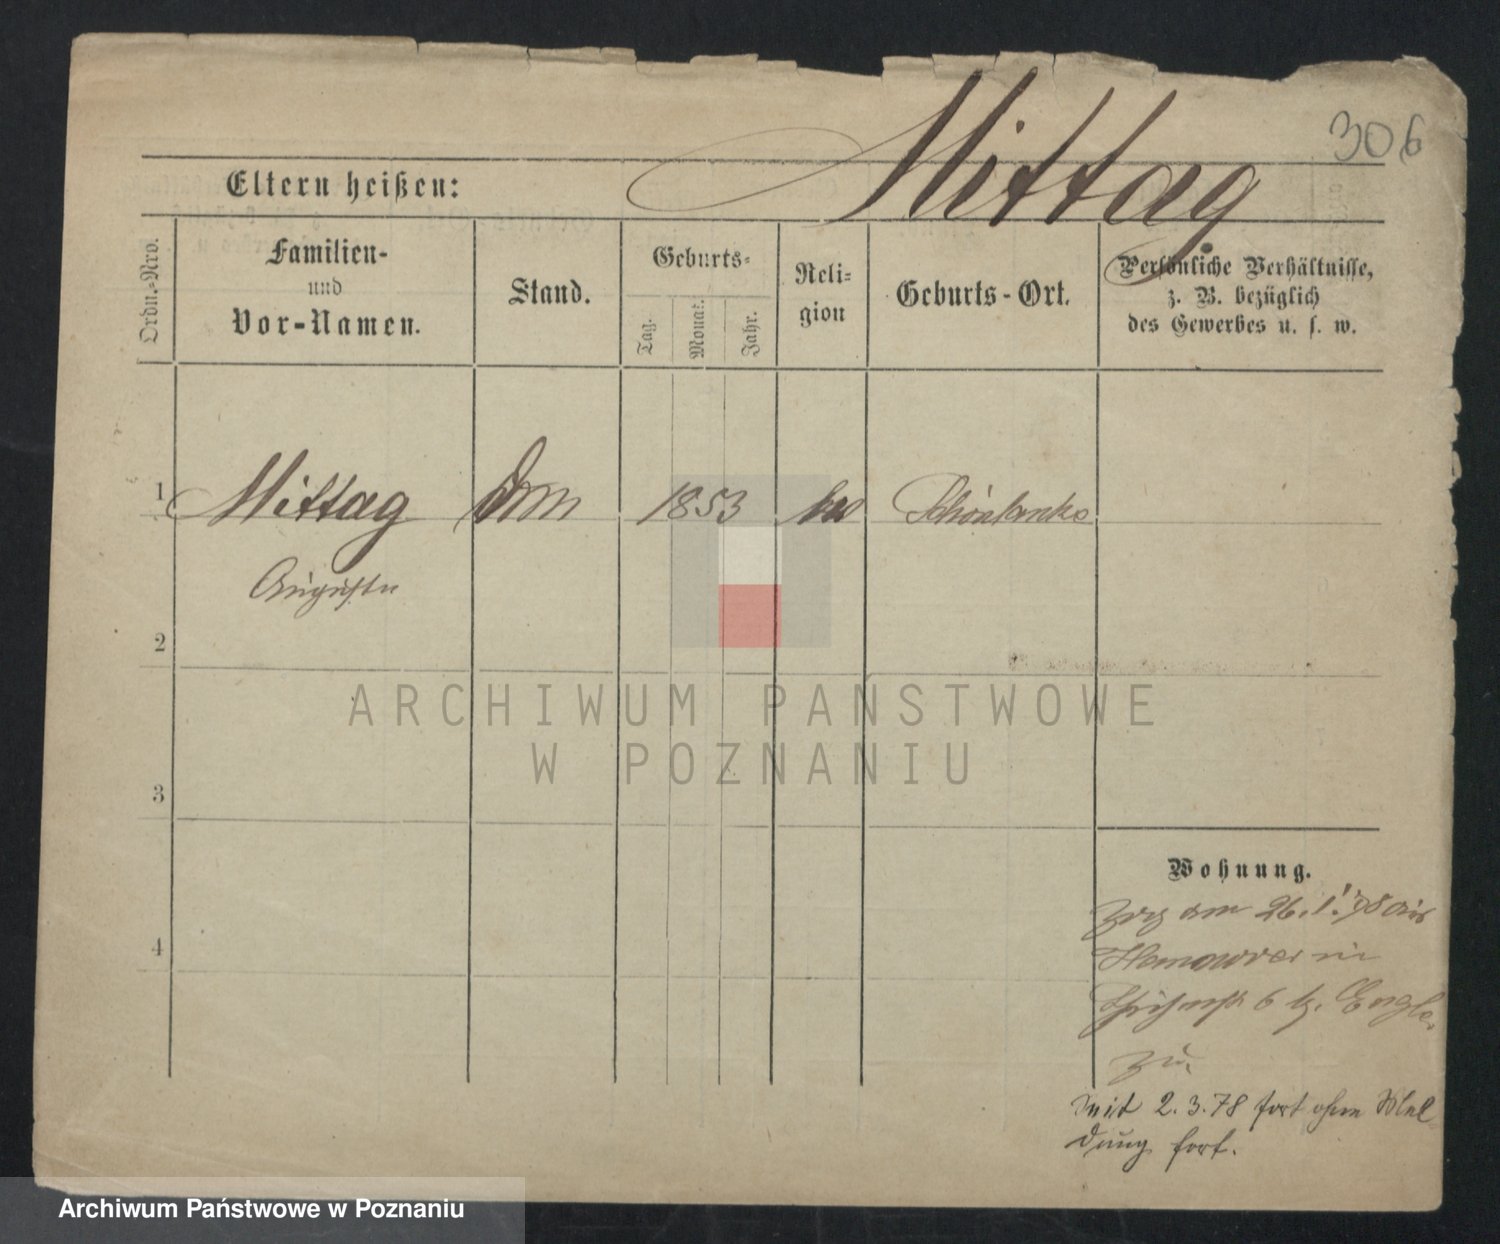 306
Mittag
Eltern heißen:
Ordn.-Nro.
Familien-
und
Vor-Namen.
Stand.
Geburts-
Tag.
Monat.
Jahr.
Reli-
gion
Geburts-Ort.
Persönliche Verhältnisse,
z. B. bezüglich
des Gewerbes u. s. w.
1 Mittag 1853 Schönlanke
Auguste
2
3
4
ARCHIWUM PAŃSTWOWE
W POZNANIU
Wohnung.
Zog am 26.1.78 aus
Hannover in
6 b.
zu.
seit 2.3.78 fort ohne Mel
dung fort.
Archiwum Państwowe w Poznaniu